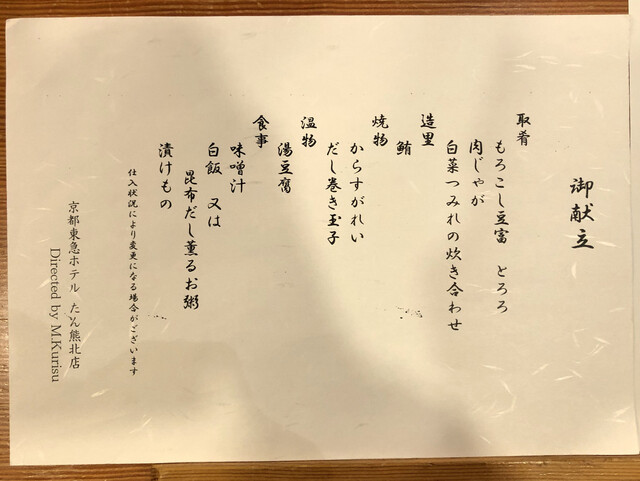 御献立
取肴
もろこし豆富　とろろ
肉じゃが
白菜つみれの炊き合わせ
造里
鮪
焼物
からすがれい
だし巻き玉子
温物
湯豆腐
食事
味噌汁
白飯　又は
昆布だし薫るお粥
漬けもの
仕入状況により変更になる場合がございます
京都東急ホテル　たん熊北店
Directed by M.Kurisu